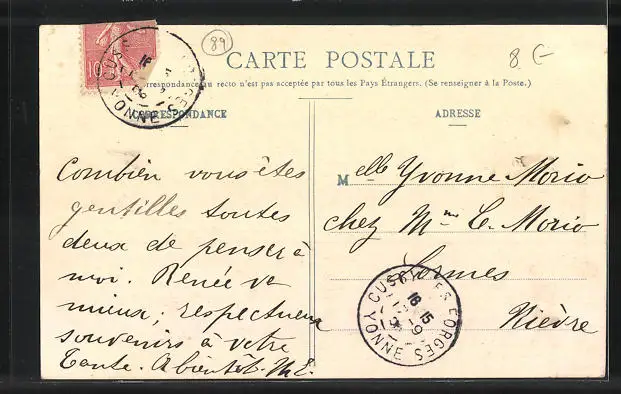 89
8 €
CARTE POSTALE
correspondance au recto n'est pas acceptée par tous les Pays Étrangers. (Se renseigner à la Poste.)
CORRESPONDANCE
ADRESSE
10
CUSSY LES FORGES
YONNE
Combien vous êtes
gentilles toutes
deux de penser à
moi. Renée va
mieux; respectueux
souvenirs à votre
Tante. A bientôt. M. E.
Melle Yvonne Morio
chez Mme C. Morio
Cormes
Nièvre
CUSSY LES FORGES
16 15
YONNE